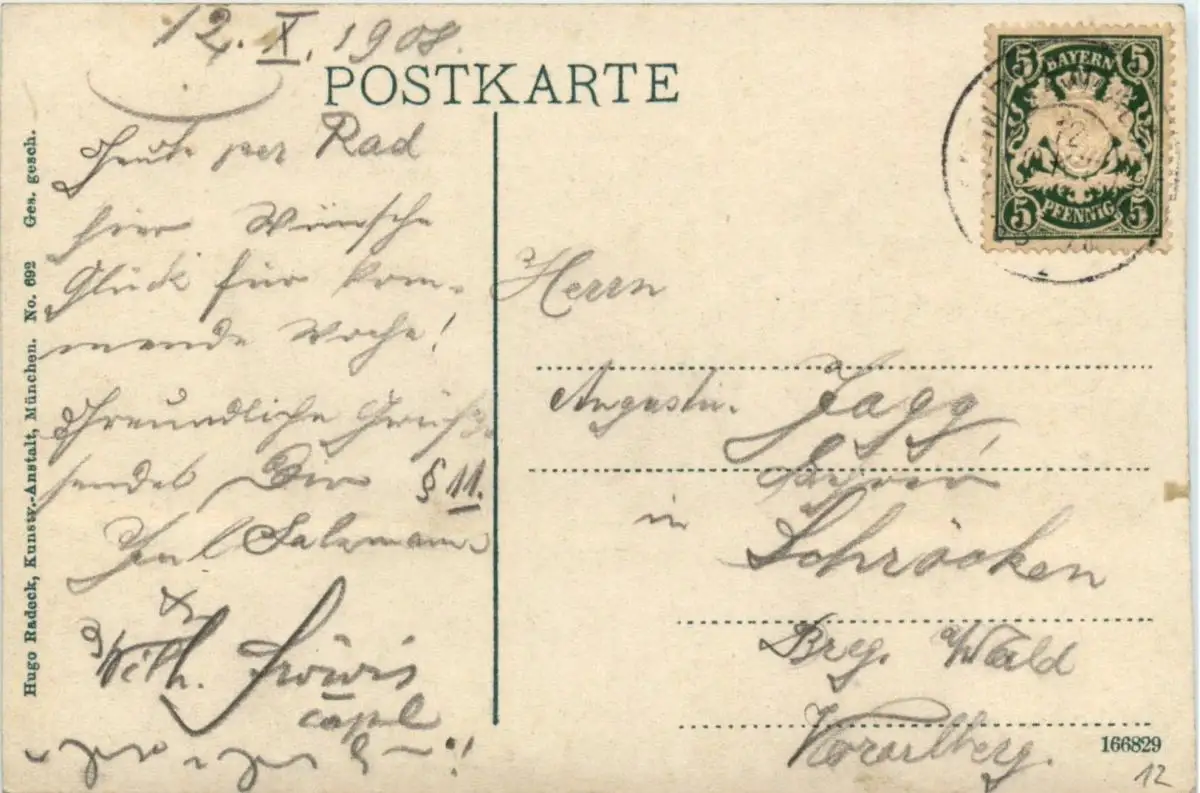 12. X. 1908.
POSTKARTE
Heute per Rad
hier Wünsche
Glück für kom-
mende Woche!
Freundliche Grüße
sendet Dir § 11.
Salzmann
Wilh.
capl
Herrn
Augustin. Jagg,
in
Schröcken
Breg. Wald
Vorarlberg.
BAYERN
5 5
5 5
PFENNIG
Hugo Radock, Kunstv.-Anstalt, München. No. 692 Ges. gesch.
166829
12